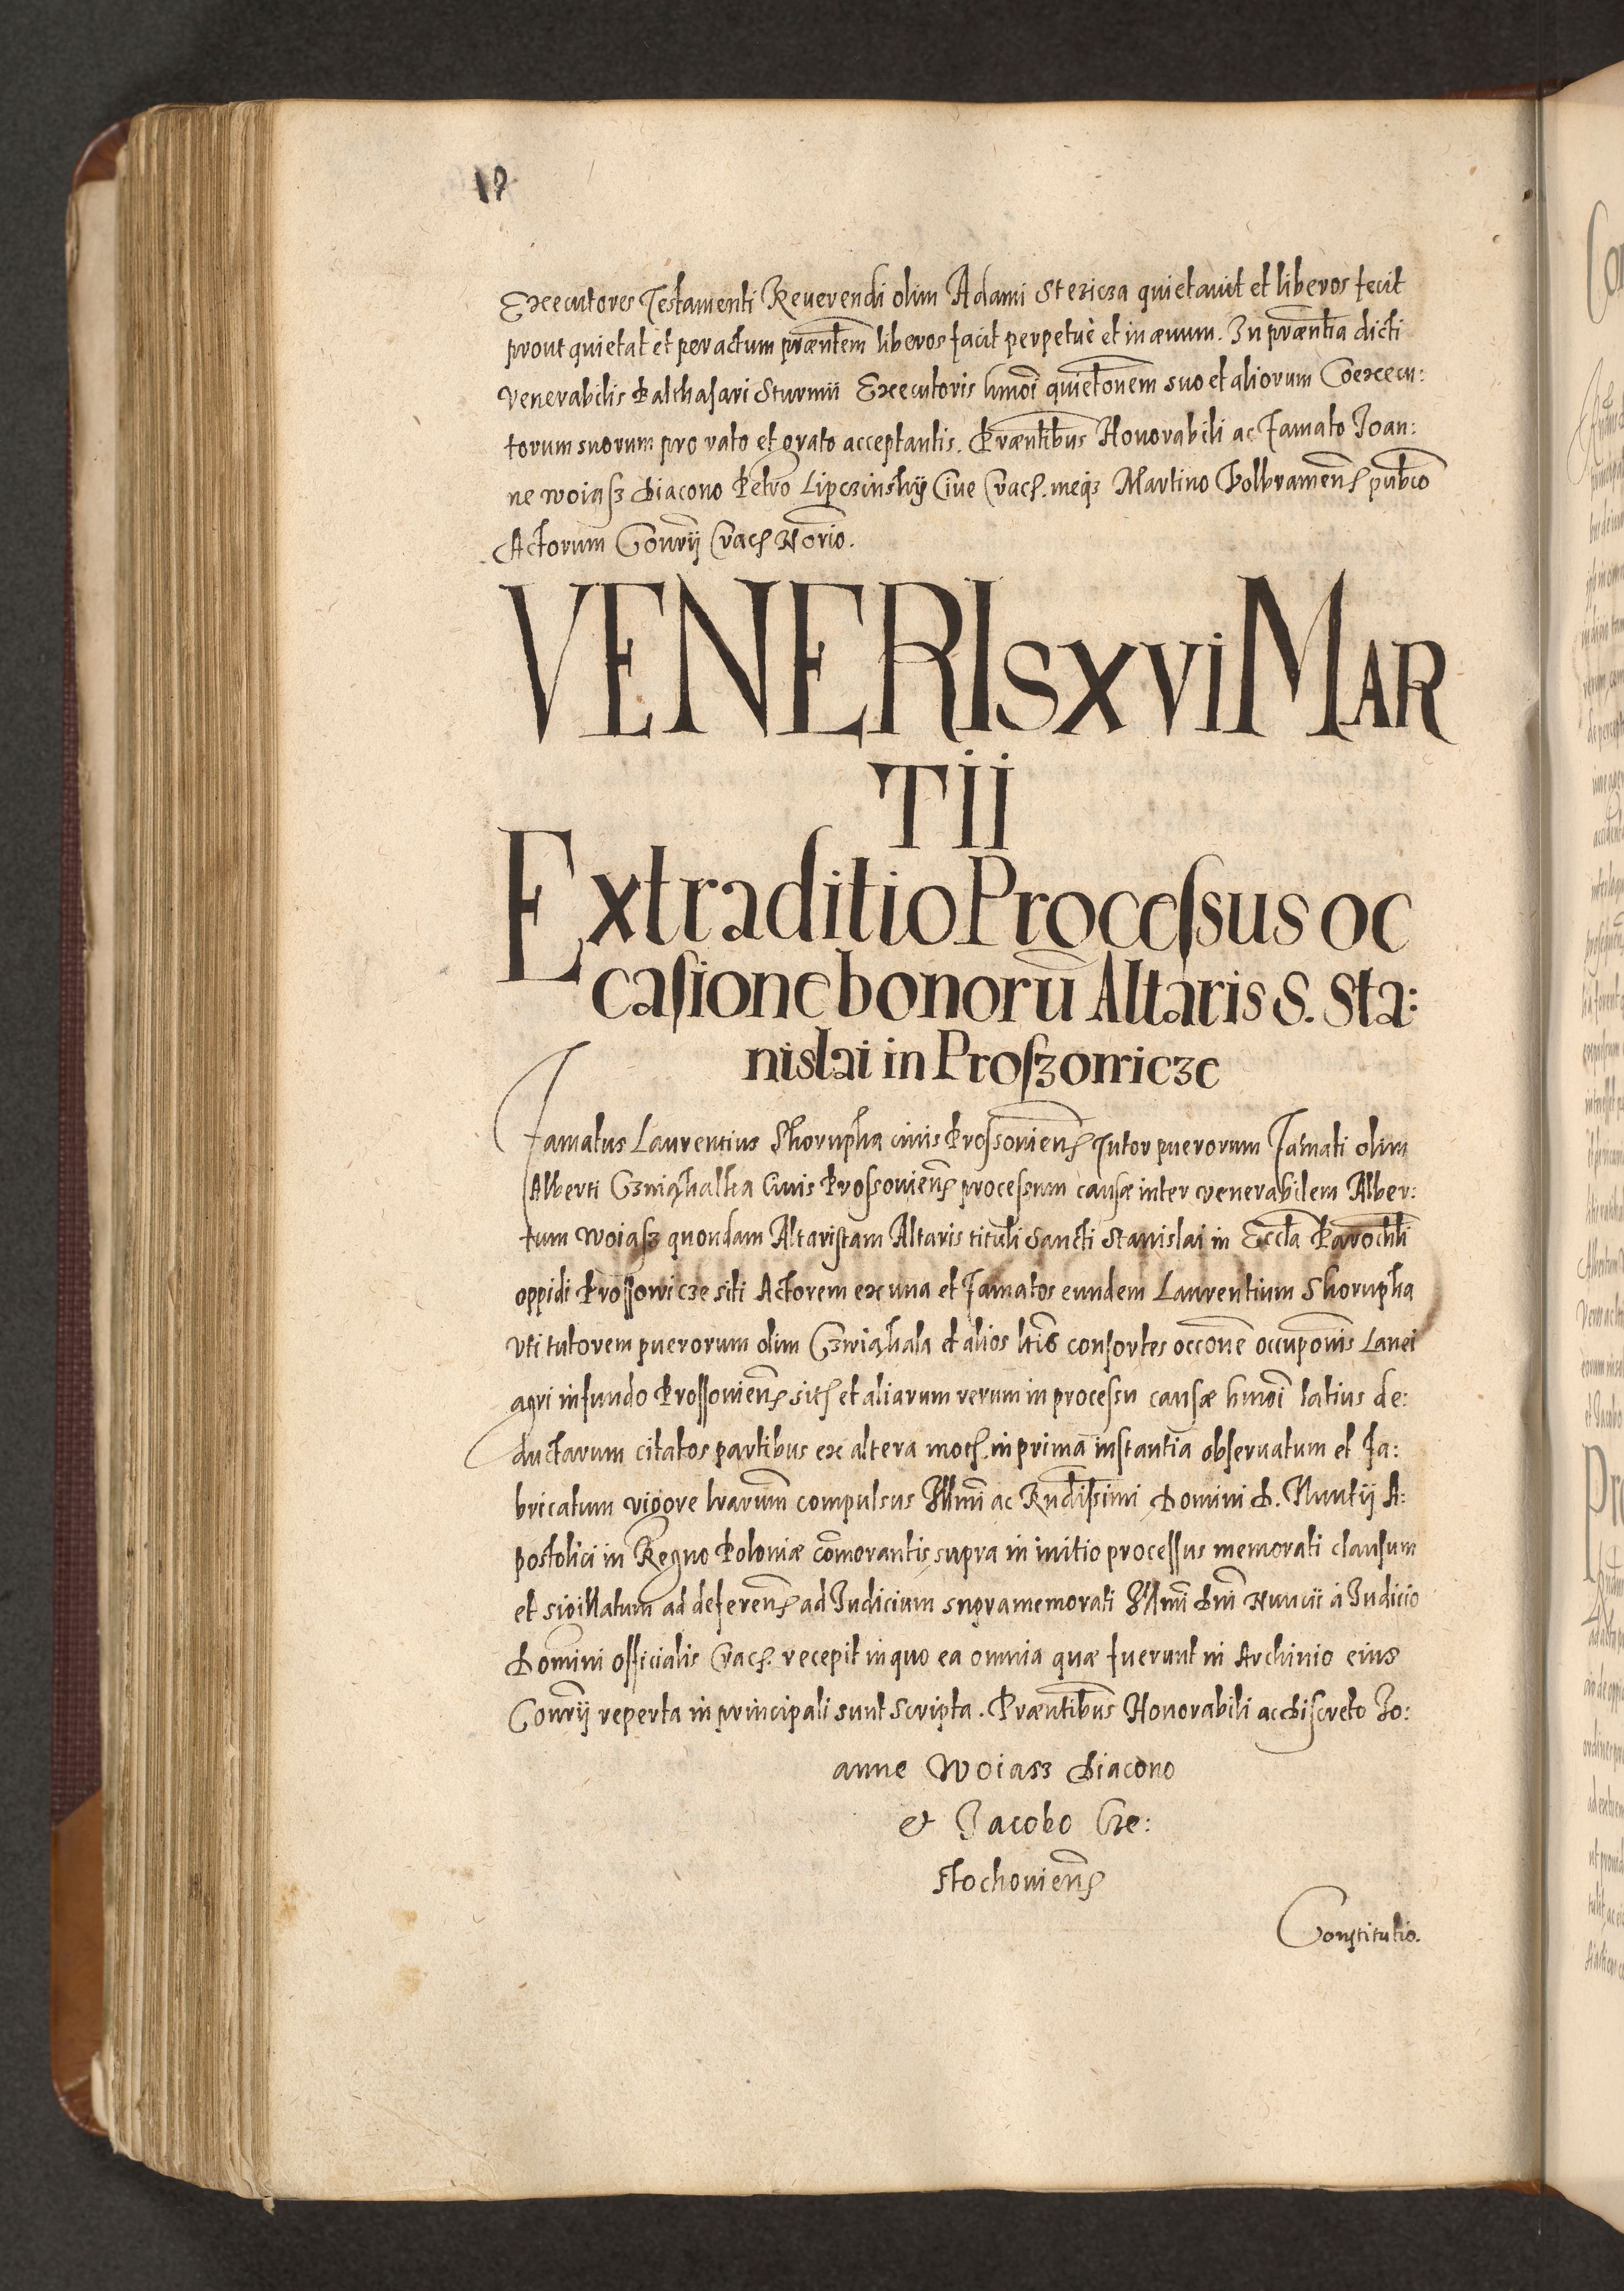 18
Executores Testamenti Reuerendi olim Adami Stezicza quietauit et liberos fecit
prout quietat et per actum præntem liberos facit perpetuè et in æuum. In præntia dicti
Venerabilis Balthasari Sturmii Executoris hmoi quietonem suo et aliorum Coexecu:
torum suorum pro rato et grato acceptantis. Præntibus Honorabili ac Famato Joan:
ne Woiasz Diacono Petro Lipczinskij Ciue Crac. meqz Martino Wolbramens publco
Actorum Consrij Crac Norio.
VENERIS XVI MAR
TII
Extraditio Processus oc
casione bonorũ Altaris S. Sta:
nislai in Proszowicze
Famatus Laurentius Skorupka ciuis Prossouiens Tutor puerorum Famati olim
Alberti Ciuis Prossouiens processum causæ inter venerabilem Alber:
tum Woiasz quondam Altaristam Altaris tituli Sancti Stanislai in Eccla Parochli
oppidi Prossowicze siti Actorem ex una et Famatos eundem Laurentium Skorupka
Vti tutorem puerorum olim et alios litis consortes occone occuponis Lanei
agri in fundo Prossouiens sit et aliarum rerum in processu causæ hmoi latius de:
ductarum citatos partibus ex altera mot. in prima instantia obseruatum et Fa:
bricatum vigore lrarum compulsus Illmi ac Rndissimi Domini D. Nuntij A:
postolici in Regno Poloniæ cõmorantis supra in initio processus memorati clausum
et sigillatum ad deferens ad Judicium supramemorati Illmi Dni Nuncii à Judicio
Domini officialis Crac. recepit in quo ea omnia quæ fuerunt in Archiuio eius
Consrij reperta in principali sunt scripta. Præntibus Honorabili ac discreto Jo:
anne Woiasz Diacono
et Jacobo Cze:
stochouiens
Constitutio.